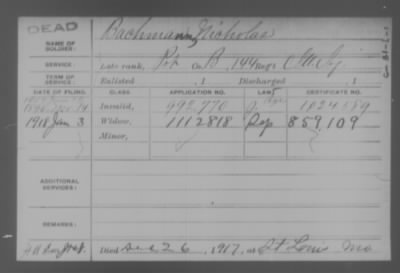 DEAD
NAME OF SOLDIER: Bachmann, Nicholas
SERVICE: Late rank, Pvt Co. B, 144 Reg't
TERM OF SERVICE: Enlisted , 1 Discharged , 1
DATE OF FILING. CLASS. APPLICATION NO. LAW. CERTIFICATE NO.
Invalid, 992,770
1918 Jan 3 Widow, 1112818 859,109
Minor,
ADDITIONAL SERVICES:
REMARKS:
Died Dec 26, 1917, at St Louis Mo